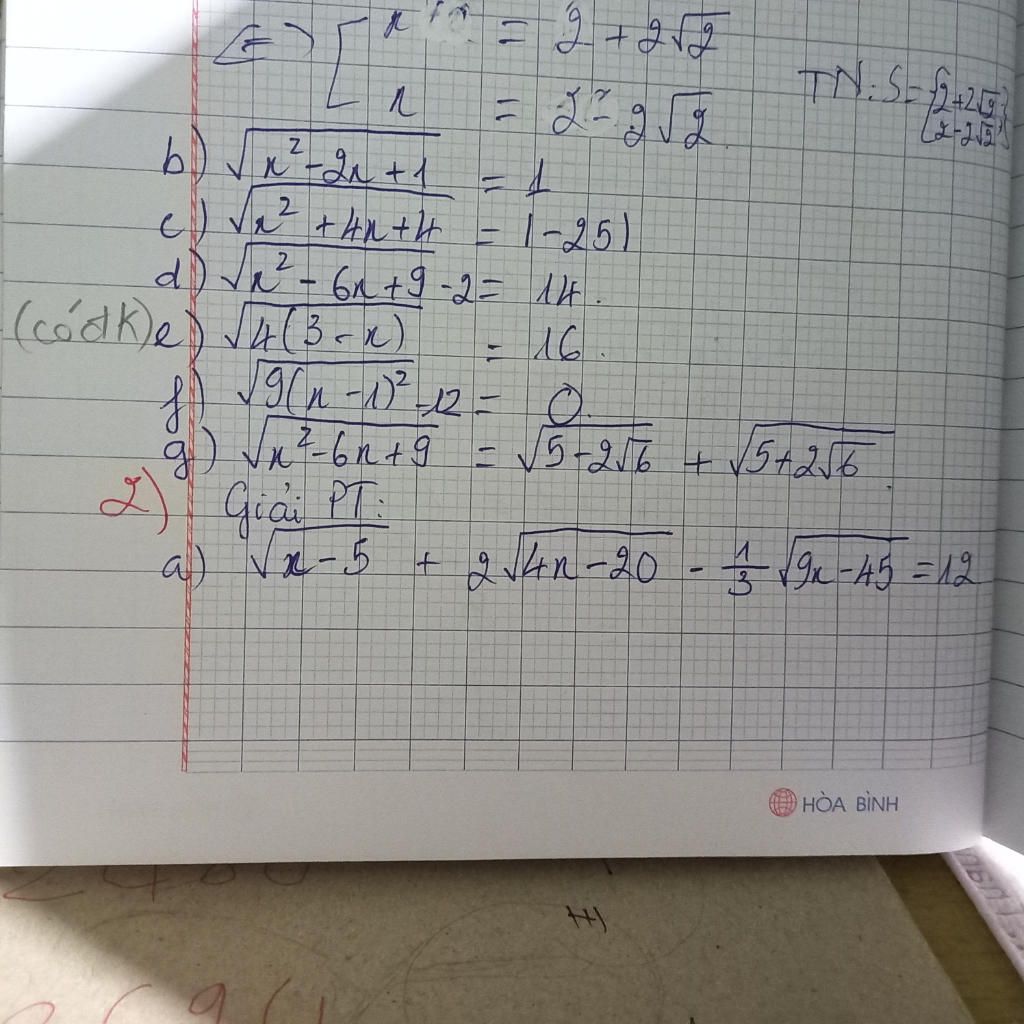 <=> [ x = 2 + 2√2
x = 2 - 2√2
TN: S = {2+2√2; 2-2√2}
b) √(x² - 2x + 1) = 1
c) √(x² + 4x + 4) = |-25|
d) √(x² - 6x + 9) - 2 = 14.
(có đk) e) √(4(3 - x)) = 16.
f) √(9(x - 1)²) - 12 = 0.
g) √(x² - 6x + 9) = √(5 - 2√6) + √(5 + 2√6).
2) Giải PT:
a) √(x - 5) + 2√(4x - 20) - 1/3 √(9x - 45) = 12
HÒA BÌNH